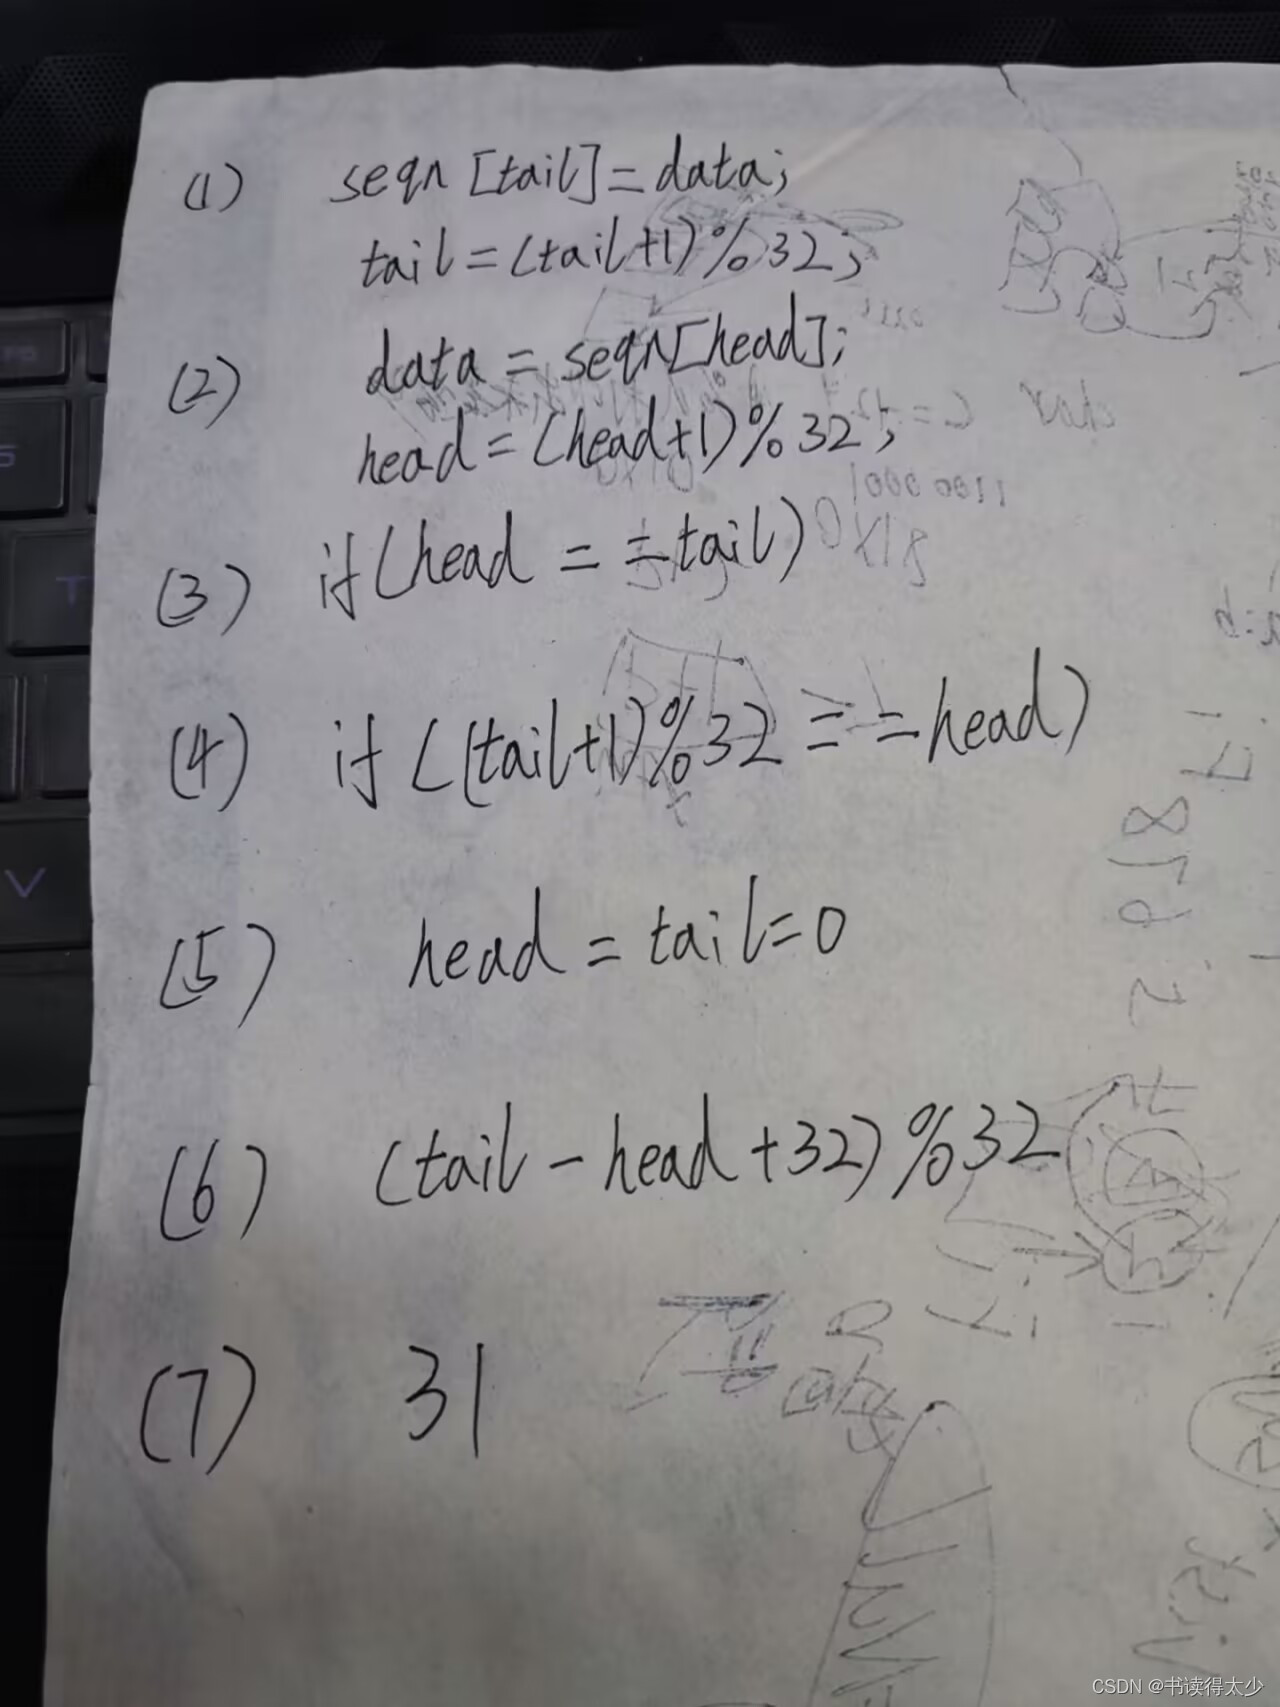 (1) seqn[tail]=data;
tail=(tail+1)%32;
(2) data = seqn[head];
head=(head+1)%32;
(3) if(head ==tail)
(4) if((tail+1)%32 ==head)
(5) head = tail=0
(6) (tail-head+32)%32
(7) 31
char
1100 0001
CSDN @书读得太少